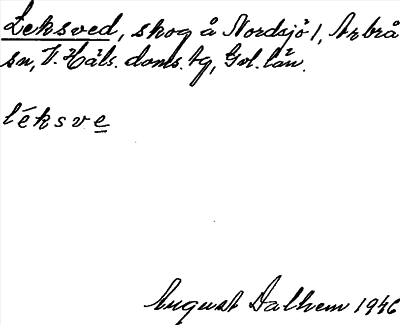 Leksved, skog å Nordsjö 1, Arbrå
sn, V. Häls. doms. tg, Gvl. län.
léksve
August Dalhem 1946